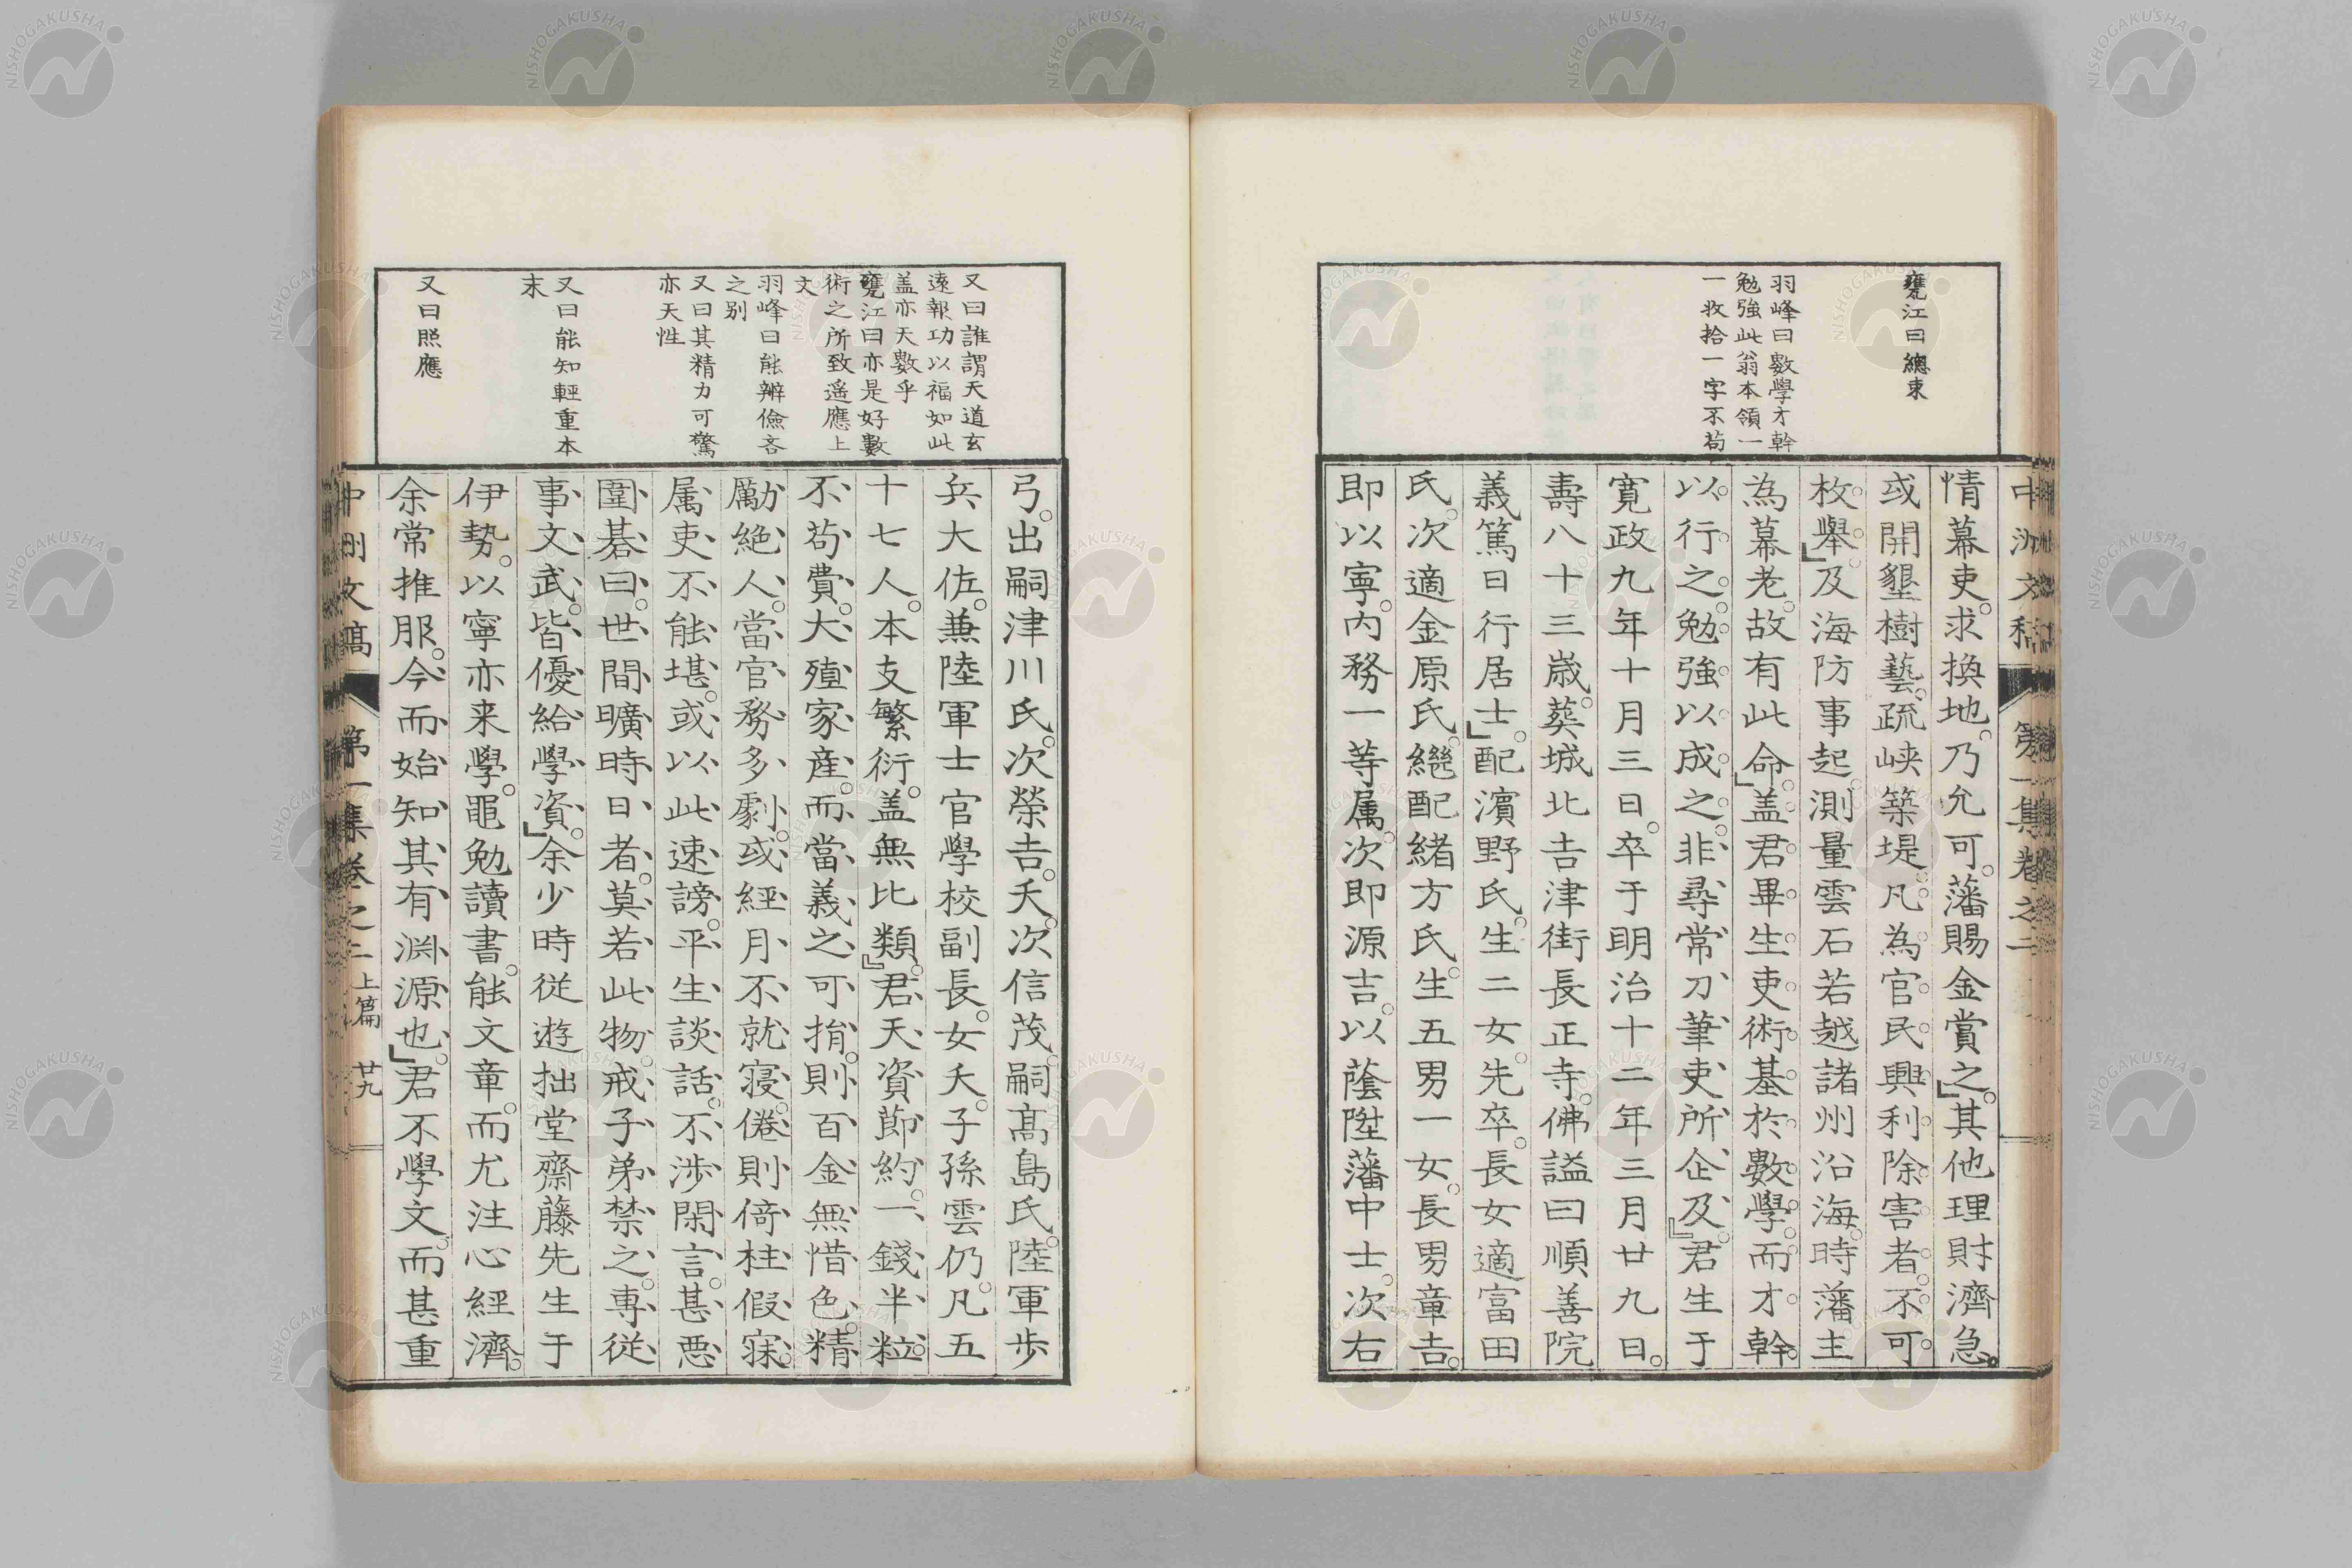 甕江曰總束
羽峰曰數學才幹
勉強此翁本領一
一收拾一字不苟
情幕吏。求換地。乃允可。藩賜金賞之。」其他理財濟急。
或開墾樹藝。疏峽築堤。凡為官民興利除害者。不可
枚舉。」及海防事起。測量雲石若越諸州沿海。時藩主
為幕老。故有此命。」盖君畢生吏術。基於數學。而才幹
以行之。勉強以成之。非尋常刀筆吏所企及。」君生于
寛政九年十月三日。卒于明治十二年三月廿九日。
壽八十三歳。葵城北吉津街長正寺。佛謚曰順善院
義篤日行居士。」配濱野氏。生二女。先卒。長女適富田
氏。次適金原氏。繼配緒方氏。生五男一女。長男章吉。
即以寧。内務一等属。次即源吉。以蔭陞藩中士。次右
中洲文稿
第一集卷之二
又曰誰謂天道玄
遠報功以福如此
盖亦天數乎
甕江曰亦是好數
術之所致遥應上
文
羽峰曰能辨儉吝
之别
又曰其精力可驚
亦天性
又曰能知輕重本
末
又曰照應
弓。出嗣津川氏。次榮吉。夭。次信茂。嗣髙島氏。陸軍歩
兵大佐。兼陸軍士官學校副長。女夭。子孫雲仍。凡五
十七人。本支繁衍。盖無比類。」君天資節約。一錢半粒。
不苟費。大殖家産。而當義之可捐。則百金無惜色。精
勵絶人。當官務多劇。或經月不就寝。倦則倚柱假寐。
属吏不能堪。或以此速謗。平生談話。不渉閑言。甚悪
圍碁。曰。世間曠時日者。莫若此物。戒子弟禁之。專從
事文武。皆優給學資。」余少時從遊拙堂齋藤先生于
伊勢。以寧亦来學。黽勉讀書。能文章。而尤注心經濟。
余常推服。今而始知其有淵源也。」君不學文。而甚重
中洲文稿
第一集卷之二上篇
廿九